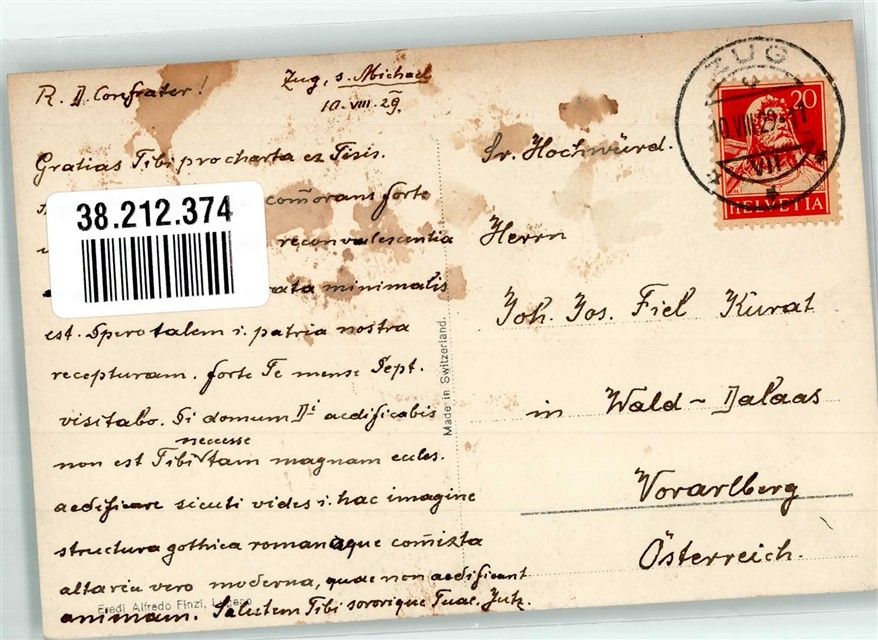 R. D. Confrater!
Zug, s. Michael
10. VIII. 29.
Gratias Tibi pro charta ex Tisis.
com̄orans forte
reconvalescentia
minimalis
est. Spero talem i. patria nostra
recepturam. forte Te mense Sept.
visitabo. Si domum Di aedificabis
necesse
non est Tibi tam magnam eccles.
aedificare sicuti vides i. hac imagine
structura gothica romanaque com̄ixta
altaria vero moderna, quae non aedificant
animam. Salutem Tibi sororique Tuae. Jutz.
38.212.374
Made in Switzerland.
Eredi Alfredo Finzi, Lugano
Sr. Hochwürd.
Herrn
Joh. Jos. Fiel Kurat
in Wald - Dalaas
Vorarlberg
Österreich.
ZUG
10.VIII.29.-11
VII
20
HELVETIA